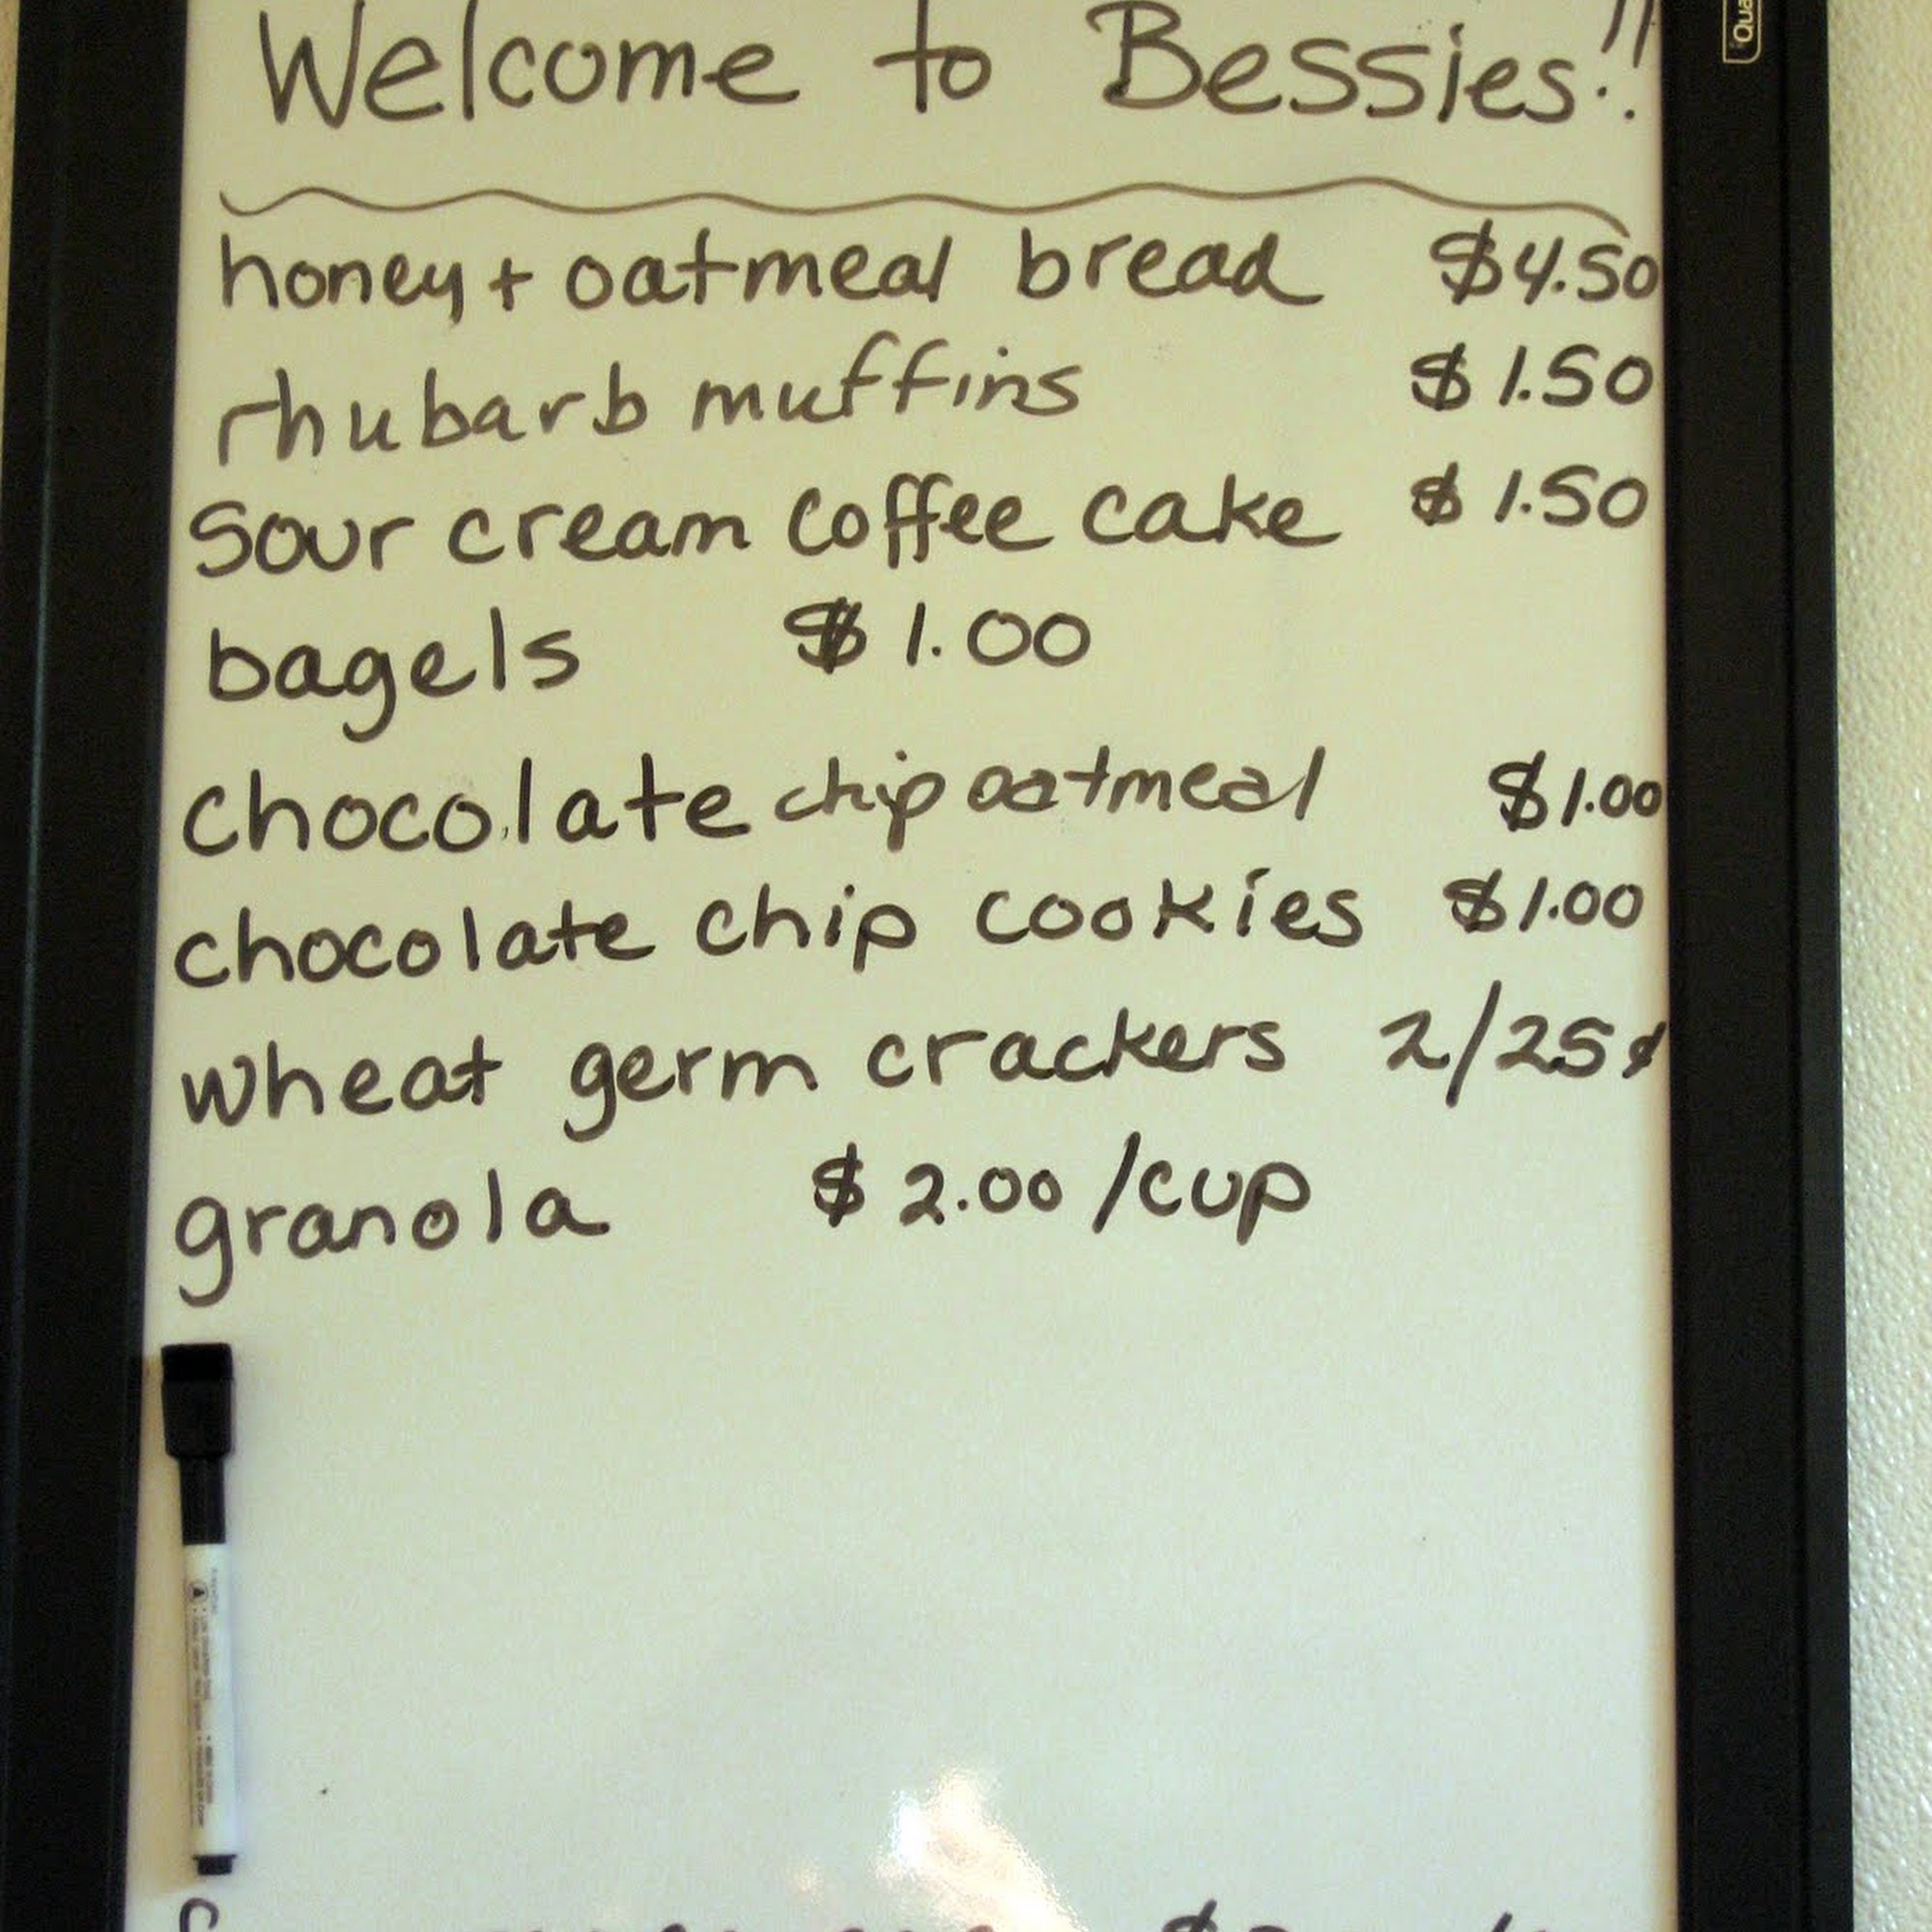 Welcome to Bessies!!
honey + oatmeal bread $4.50
rhubarb muffins $1.50
Sour cream coffee cake $1.50
bagels $1.00
chocolate chip oatmeal $1.00
chocolate chip cookies $1.00
wheat germ crackers 2/25¢
granola $2.00/cup